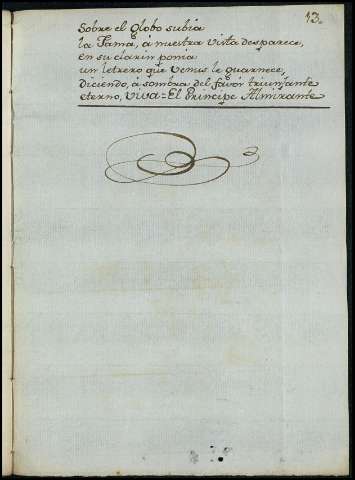 13.
Sobre el globo subia
la Fama, á nuestra vista desparece,
en su clarin ponia
un letrero que Venus le guarnece,
Diciendo, á sombra del favor triunfante
eterno, viva = El Principe Almirante